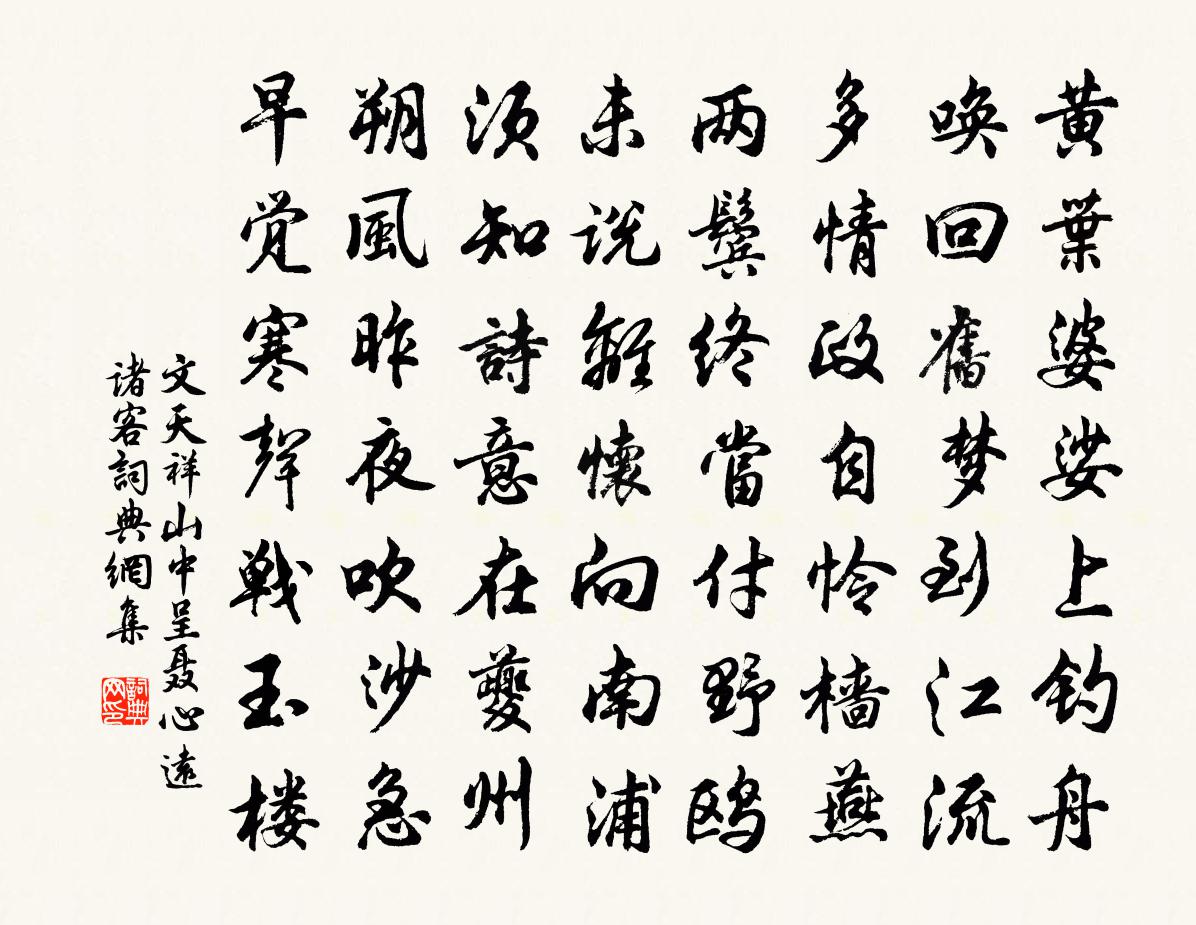 黄葉婆娑上钓舟
唤回舊梦到江流
多情政自怜檣燕
两鬓终當付野鸥
未说離懷向南浦
须知詩意在夔州
朔風昨夜吹沙急
早觉寒聲戰玉楼
文天祥山中呈聂心遠
诸客詞典網集
詞典网印